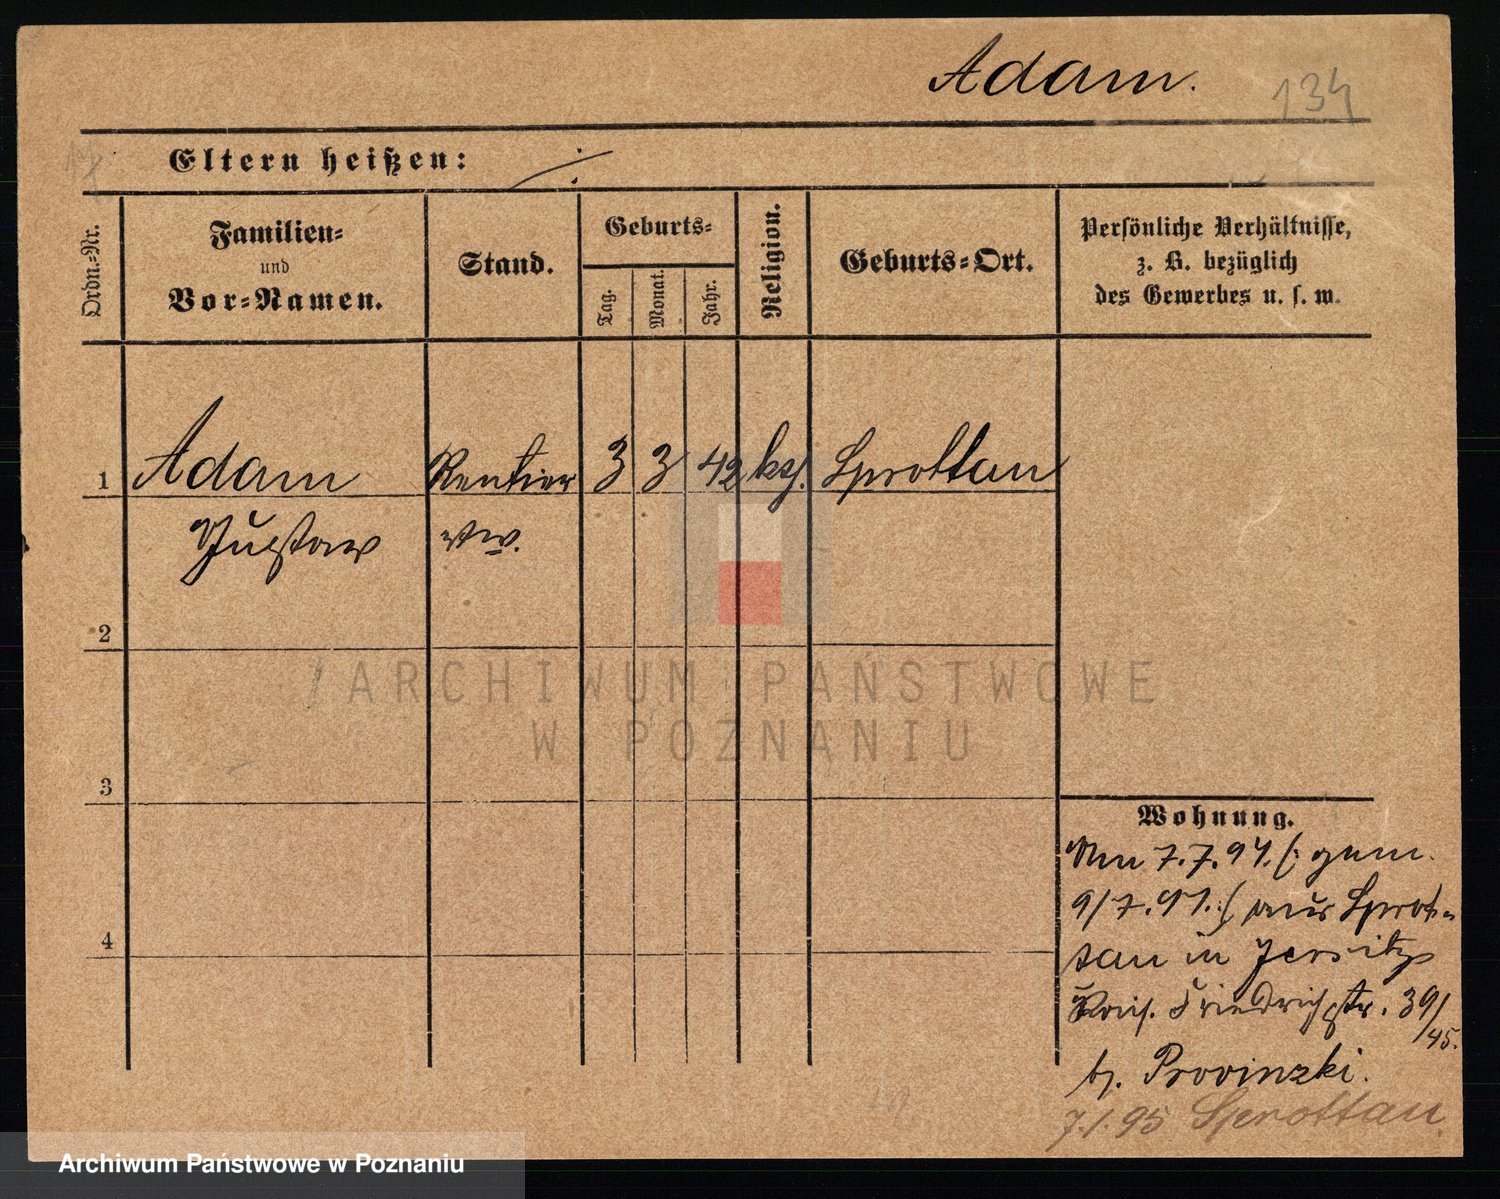 Adam.
134
Eltern heißen: ·/·
Ordn.-Nr.
Familien-
und
Vor-Namen.
Stand.
Geburts-
Tag.
Monat.
Jahr.
Religion.
Geburts-Ort.
Persönliche Verhältnisse,
z. B. bezüglich
des Gewerbes u. s. w.
1 Adam Rentier 3 3 42 Sprottau
Gustav ww.
2
3
4
Wohnung.
7.7.94. (: gem.
9/7.94. :) aus Sprot-
tau in Jersitz
Friedrichstr. 39/
/45.
b. Prowinzki.
7.1.95 Sprottau.
ARCHIWUM PAŃSTWOWE
W POZNANIU
Archiwum Państwowe w Poznaniu